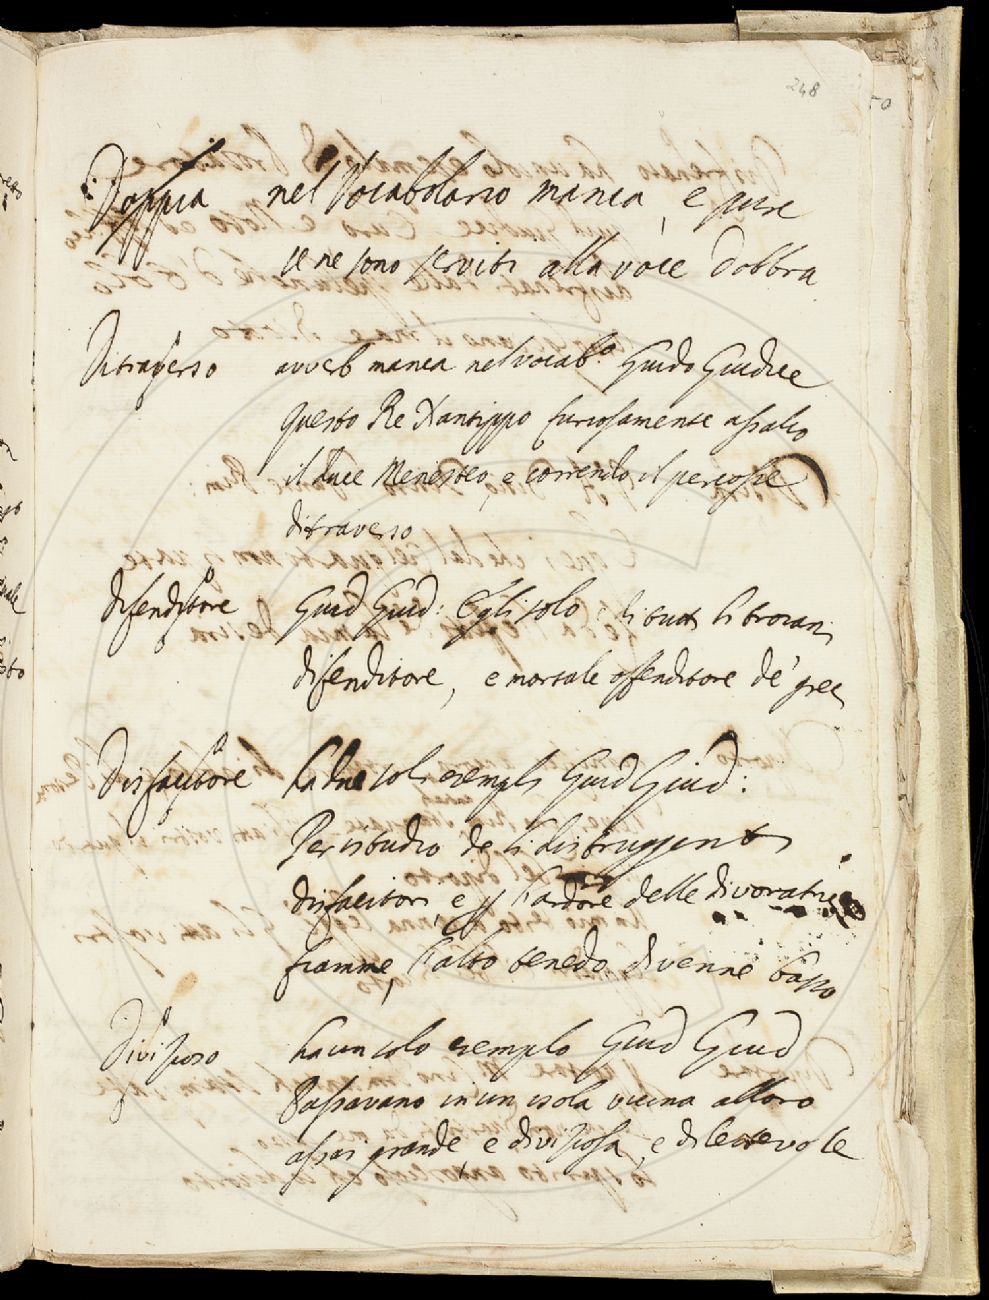 248
50
Doppia nel Vocabolario manca, e pure
se ne sono serviti alla voce Dobbra
Ditraverso avverb manca nel vocab.o Guido Giudice
questo Re Xantippo furiosamente assalio
il duce Menesteo, e correndo il percosse
ditraverso
difenditore Guid Giud: Egli solo di tutti li troiani
difenditore, e mortale offenditore de' greci
Disfacitore ha due soli esempli Guid Giud:
Per istudio de li distruggenti
disfacitori, e p l'ardore delle divoratrici
fiamme, l'alto tenedo divenne basso
Divizioso ha un solo esemplo Guid Giud
Passavano in un isola vicina alloro
assai grande, e diviziosa, e dilettevole